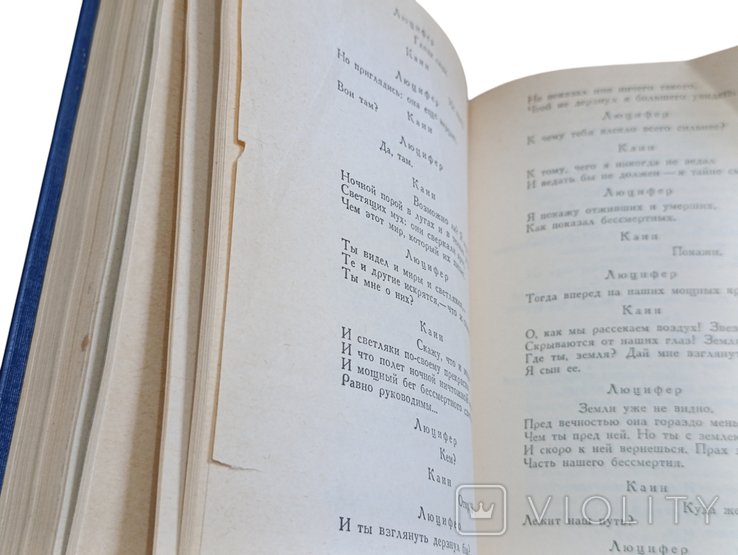 Люцифер
Каин
Люцифер
Но приглядись: она еще
Каин
Вон там?
Люцифер
Да, там.
Каин
Возможно ль?
Ночной порой в лугах и в
Светящих мух: они сверкали
Чем этот мир, который их
Люцифер
Ты видел и миры и светляков,
Те и другие искрятся,—что
Ты мне о них?
Каин
Скажу, что и
И светляки по-своему прекрасны
И что полет ночной ничтожной
И мощный бег бессмертного
Равно руководимы...
Люцифер
Кем?
Каин
Люцифер
И ты взглянуть дерзнул бы?
Не показал мне ничего такого,
Чтоб не дерзнул я большего увидеть.
Люцифер
К чему тебя влекло всего сильнее?
Каин
К тому, чего я никогда не ведал
И ведать бы не должен—к тайне
Люцифер
Я покажу отживших и умерших,
Как показал бессмертных.
Каин
Покажи.
Люцифер
Тогда вперед на наших мощных
Каин
О, как мы рассекаем воздух!
Скрываются от наших глаз!
Где ты, земля? Дай мне взглянуть
Я сын ее.
Люцифер
Земли уже не видно.
Пред вечностью она гораздо
Чем ты пред ней. Но ты с землею
И скоро к ней вернешься. Прах
Часть нашего бессмертия.
Каин
Куда же
Лежит наш путь?
Люцифер
VIOLITY